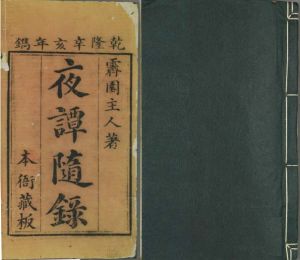 乾隆辛亥年鐫
霽園主人著
夜譚隨錄
本衙藏板